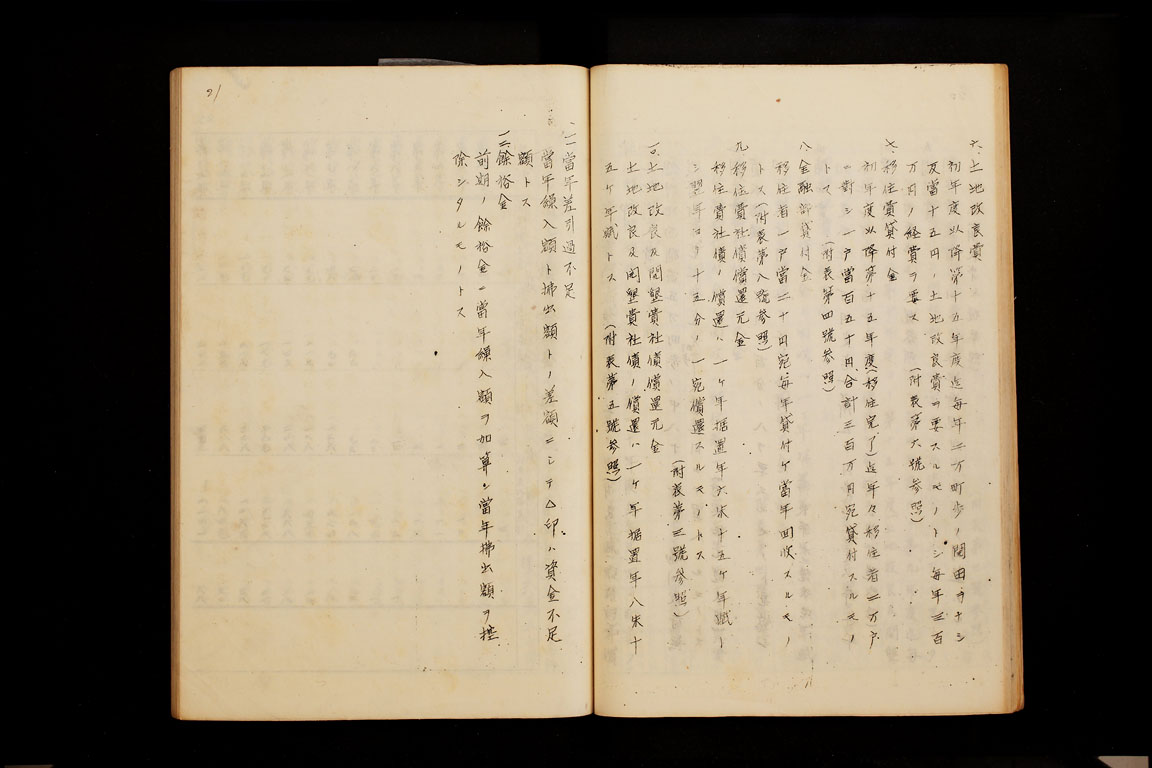 六、土地改良費
初年度以降第十五年度迄毎年二万町歩ノ開田ヲナシ
反當十五円ノ土地改良費ヲ要スルモノトシ毎年三百
万円ノ経費ヲ要ス (附表第六號參照)
七、移住費貸付金
初年度以降第十五年度(移住完了)迄年々移住者二万戸
ニ對シ一戸當百五十円合計三百万円宛貸付スルモノ
トス (附表第四號參照)
八金融部貸付金
移住者一戸當二十円宛毎年貸付ケ當年回收スルモノ
トス(附表第八號參照)
九移住費社債償還元金
移住費社債ノ償還ハ一ヶ年据置年六朱十五ヶ年賦ト
シ翌年ヨリ十五分ノ一宛償還スルモノトス
(附表第三號參照)
一〇、土地改良及開墾費社債償還元金
土地改良及開墾費社債ノ償還ハ一ヶ年据置年八朱十
五ヶ年賦トス (附表第五號參照)
一一當年差引過不足
當年繰入額ト拂出額トノ差額ニシテ△印ハ資金不足
額トス
一二、餘裕金
前期ノ餘裕金ニ當年繰入額ヲ加算シ當年拂出額ヲ控
除シタルモノトス